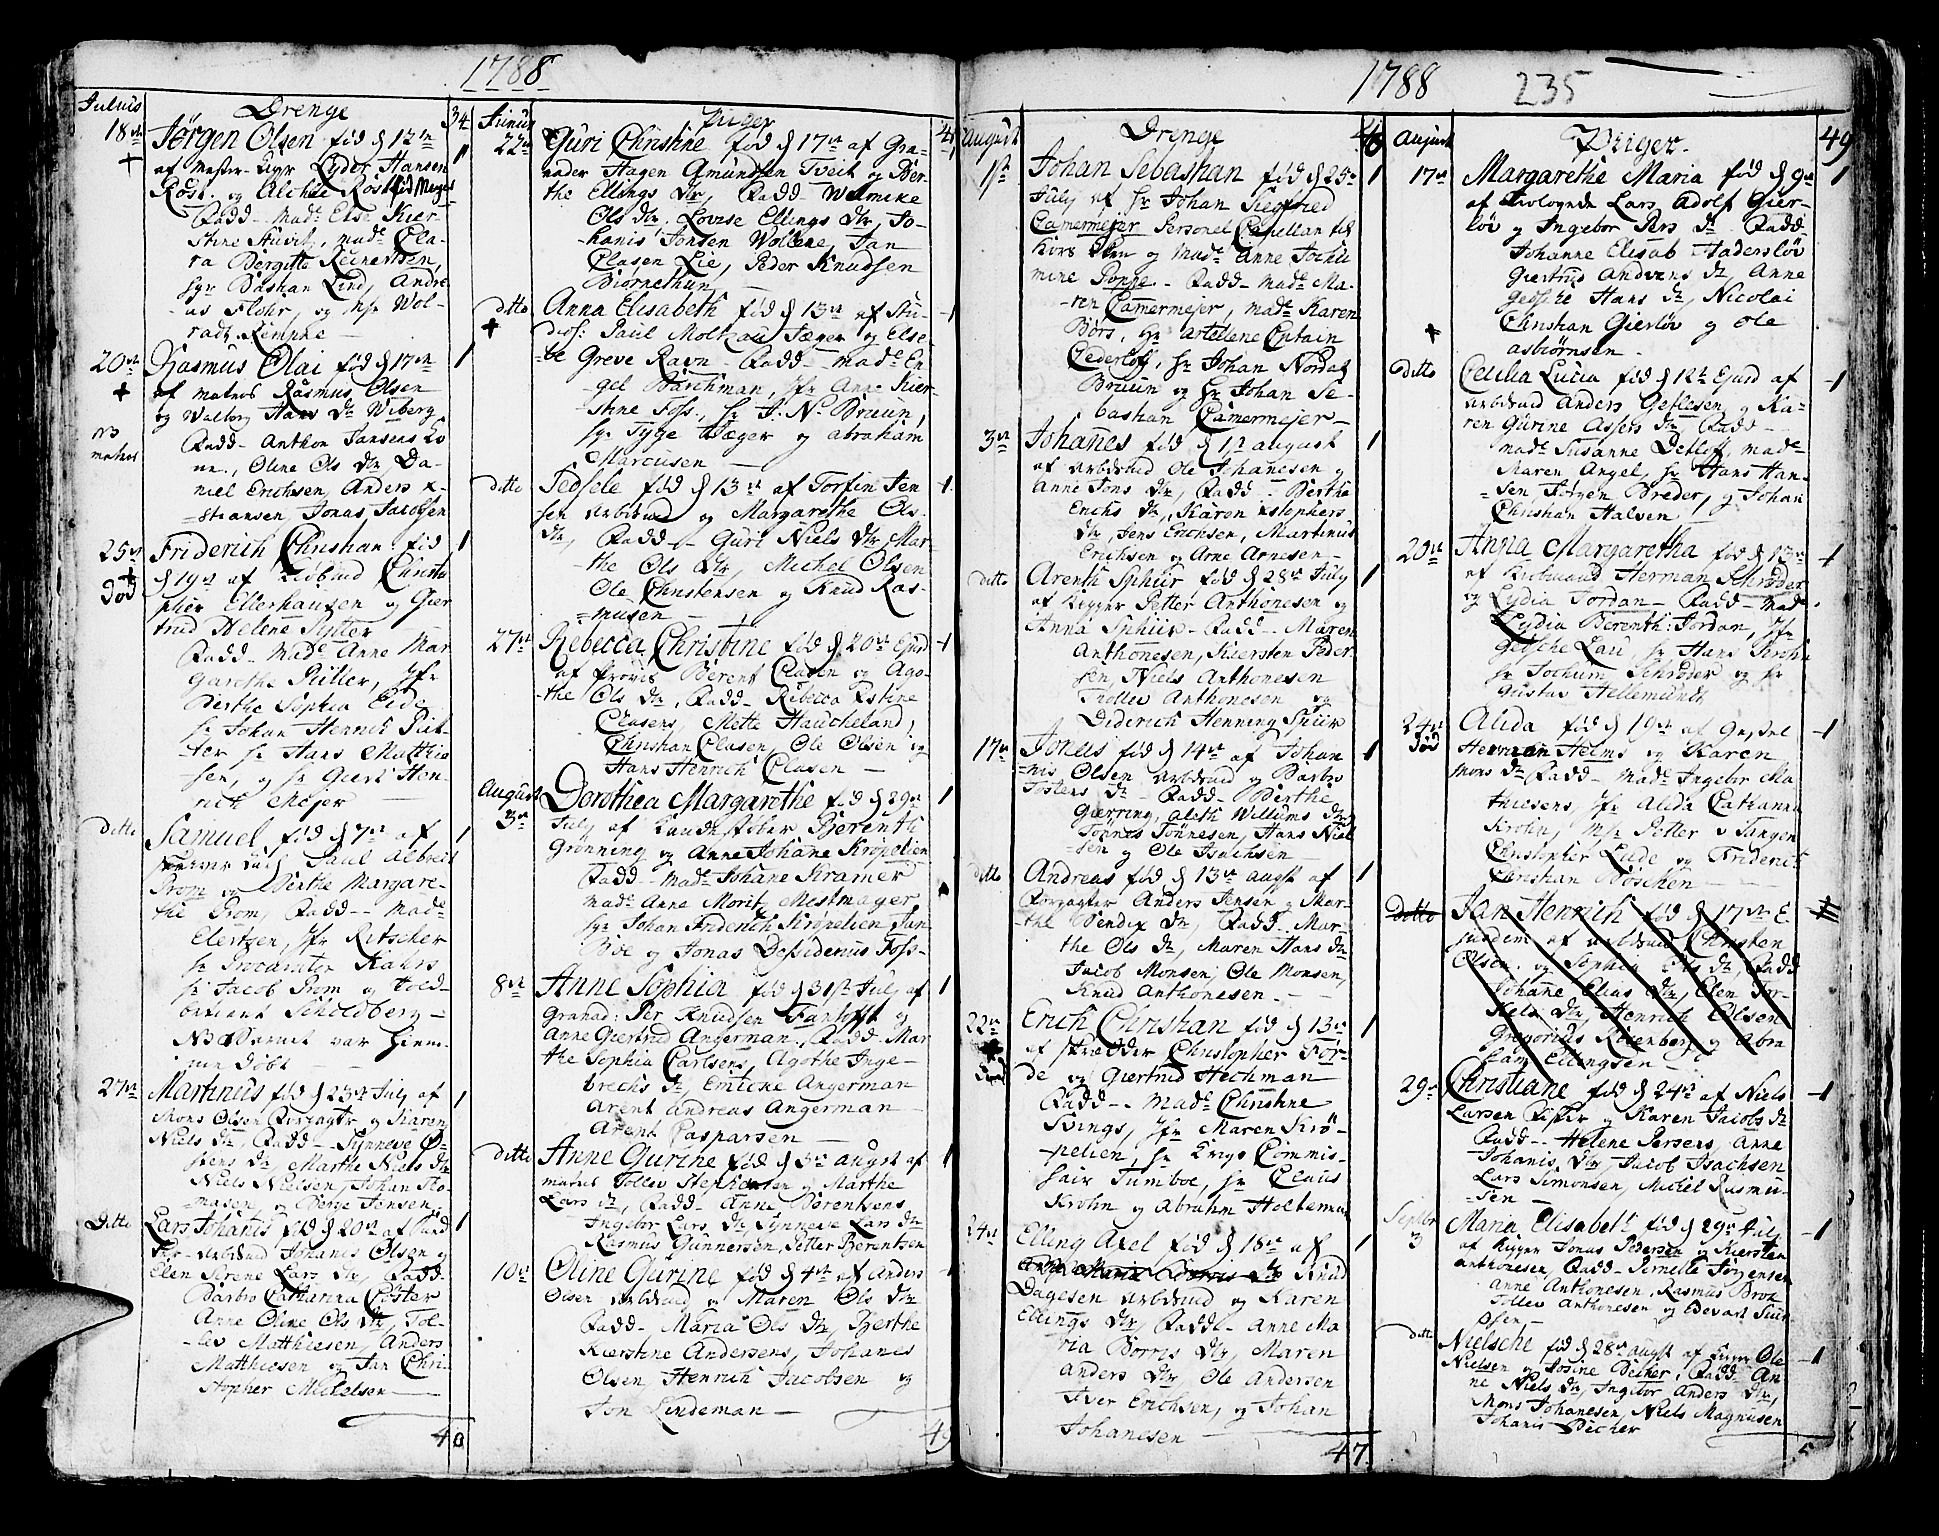 1788
Julius
Drenge
34
18de
Jørgen Olsen fød d 12te
af Mester
Lyder Hansen
Røst og Alchie Røst fød Meyer
Fadd- Mad. Else Kier-
stine Stuvitz, Mad. Cla-
ra Bergitte Reinertsen,
Sgr Bastian Lind, Andre-
as Flohr, og Msr Wol-
radt Kempke
20de
Rasmus Olai fød d 17de
1
af Matros Rasmus Olsen
og Walborg Hans Dtr Wiberg
NB
matros
Fadd- Anthon Jansens Ko-
ne, Oline Ols Dtr, Da-
niel Erichsen, Anders
Jonas Jacobsen
25de
Friderich Christian fød
1
død
d 19de af Christo-
pher Ellerhausen og Gier-
trud Helene Sylter
Fadd- Mad. Anne Mar-
garethe Ritter, Jfr
Berthe Sophia Eide
Hr Johan Henrich Rit-
ter Hr Hans Matthie-
sen, og Hr Giert Hen-
rich Meyer
ditto
Samuel fød d 7de af
1
Paul
Prom og Berthe Margare-
the Prom, Fadd-- Mad.
Elertsen, Jfr Ritscher
Hr Kahrs
Hr Jacob Prom og
Scholdberg
NB Barnet var hiem-
me døbt
27de
Martinus fød d 23de July af
1
Mons Olsen og Karen
Niels Dtr, Fadd- Synneve O-
stens Dtr, Marthe Niels Dtr
Niels Nielsen, Johan Tho-
masen og Børge Jensen
Ditto
Lars Johanis fød d 20de af
1
Johanis Olsen og
Elen Serene Lars Dtr, Fadd-
Barbro Catharina Cöster
Anne Oline Ols Dtr, Tol-
lev Matthiesen, Anders
Matthiesen og Jan Chri-
stopher Mickelsen
40
Junius
Piiger
22de
Guri Christine fød d 17de af Gra-
nader Hagen Amundsen Tveit og Ber-
the Ellings Dtr, Fadd- Welmike
Ols Dtr, Lovise Ellings Dtr, Jo-
hanis Jonsen Wollene, Jan
Clasen Lie, Peder Knudsen
Biørnethun
ditto
Anna Elisabeth fød d 13de af Stu-
1
dios: Paul Moltzau Jæger og Else-
be Greve Ravn- Fadd- Mad. En-
gel Barchman, Jfr Anne Kier-
stine Foss, Hr J. N. Bruun,
Sgr Tyge Jæger og Abraham
Marcusen
ditto
Tedsele fød d 13de af Torfin Jen-
1
sen Arbdsud og Margarethe Ols
Dtr, Fadd- Guri Niels Dtr Mar-
the Ols Dtr, Michel Olsen
Ole Christensen og Knud Ras-
musen
27de
Rebecca Christine fød d 20de Ejusd
1
af Berent Clasen og Ago-
the Ols Dtr, Fadd- Ribecca Estine
Clasens, Mette Hauckeland,
Christian Clasen, Ole Olsen og
Hans Henrich Clasen
August
3de
Dorothea Margarethe fød d 29de
1
July af Berenth
Grønning og Anne Johane Kropelien
Fadd- Mad. Johane Kramer
Mad. Anne Moritz Mestmager,
Sgr Johan Friderich Kröpelien Jan
Böe og Jonas Desiderius Foss
8de
Anne Sophia fød d 31st July af
1
Granad: Per Knudsen Fantoft og
Anne Giertrud Angerman, Fadd- Mar-
the Sophia Carlsens, Agothe Inge-
brechs Dtr, Emicke Angerman
Arent Andreas Angerman
Arent Casparsen
ditto
Anne Gurine fød d 3de August af
1
Matros Tollev Stephensen og Marthe
Lars Dtr, Fadd- Anne Berentsens
Ingebor Lars Dtr Synneve Lars Dtr
Rasmus Gunnersen, Petter Berentsen
10de
Oline Gurine fød d 4de af Anders
Olsen Arbdsud og Maren Ols Dtr
Fadd- Maria Ols Dtr, Berthe
Kierstine Andersens, Johanis
Olsen, Henrich Jacobsen og
Jon Lindeman
49
1788
235
August
Drenge
40
1st
Johan Sebastian fød d 25de
1
July af Hr Johan Siegfried
Camermejer Personel Capellan til
Kors Kkn og Mad. Anne Jochu-
mine Poppe- Fadd- Mad. Ma-
ren Camermejer, Mad. Karen
Börs, Hr Artelerie Captain
Cederloff, Hr Johan Nordal
Bruun og Hr Johan Se-
bastian Camermejer
3de
Johanes fød d 1st August
1
af Arbdsud Ole Johanesen og
Anne Jons Dtr, Fadd- Berthe
Erichs Dtr, Karen Stephens
Dtr, Jens Erichsen, Martinus
Erichsen og Arne Arnesen
ditto
Arenth Sphür fød d 28de July
1
af Rigger Petter Anthonesen og
Anna Sphür- Fadd- Maren
Anthonesen, Kiersten Peder-
sen, Niels Anthonesen
Tollev Anthonesen og
Diderich Henning Spiir
17de
Johes fød d 14de af Johan-
1
nis Olsen Arbdsud og Barbro
Tostens Dtr- Fadd- Berthe
Gierring, Aleth Willums Dtr
Tönnes Tönnesen, Hans Niel-
sen og Ole Isachsen
ditto
Andreas fød d 13de Augst af
1
Borgagter Anders Jensen og Mar-
the Bendix Dtr, Fadd- Mar-
the Ols Dtr, Maren Hans Dtr
Jacob Monsen, Ole Monsen,
Knud Anthonesen
22de
Erich Christian fød d 13de
1
af Skrædder Christopher För-
de og Giertrud Heckman
Fadd- Mad. Christine
Svings, Jfr Maren Krö-
pelien, Hr Krigs Commis-
sair Tumboe, Hr Claus
Krohn og Abrahm Holterman
24de
Elling Axel fød d 18de af
1
Knud
Dagesen Arbdsud og Karen
Ellings Dtr, Fadd- Anne Ma-
ria Borris Dtr, Maren
Anders Dtr Ole Andersen
Iver Erichsen, og Johan
Johanesen
47
1788
August
Piiger
49
17de
Margarethe Maria fød d 9de
1
af Lars Adolf Gier-
löv og Ingebor Pers Dtr Fadd-
Johanne Elisab Haderslöv
Giertrud Andreas Dtr, Anne
Geschce Hans Dtr, Nicolai
Christian Gierlöv og Ole
Asbiörnsen
ditto
Cecilia Lucia fød d 12te Ejusd af
1
Arbdsud Anders Geflesen og Ka-
ren Gurine Assers Dtr, Fadd-
Mad. Susanne Detloff, Mad.
Maren Angel, Hr Hans Han-
sen, Jörgen Breder, og Johan
Christian Halsen
20de
Anna Margaretha fød d 13de
1
af Kiöbmand Herman Schröder
og Lydia Jordan- Fadd- Mad.
Lydia Berenth: Jordan, Jfr
Gesche Lau, Hr Hans Krohn
Hr Jochum Schröder og Hr
Gustus Hellemundt
24de
død
Alida fød d 19de af
1
Herman Helms og Karen
Mons Dtr Fadd- Mad. Ingebr Ma-
thiesens, Jfr Alida Catharina
Krohn, Msr Petter v Tangen
Christopher Lude og Friderich
Christian Böschen
Ditto
Jan Henrich fød d 17de E-
jusdem af Arbdsud Christen
Olsen og Sophia Ols Dtr, Fadd
Johanne Elias Dtr, Elen Tor-
kels Dtr, Henrich Olsen
Gregorius Rosenberg og Abra-
ham Ellingsen
29de
Christiane fød d 24de af Niels
1
Larsen og Karen Jacobs Dtr
Fadd-- Helene Persens, Anne
Johanis Dtr, Jacob Isachsen
Lars Simonsen, Michel Rasmu-
sen
Septbr
3
Maria Elisabeth fød d 29de July
1
af Rigger Jonas Pedersen og Kiersten
Anthonesen, Fadd- Pernelle Jörgensen
Anne Anthonesen, Rasmus Brok
Tollev Anthonesen og Edevart Siur-
sen
ditto
Nielsche fød d 28de Augst af Ole
1
Nielsen og Josine Becker, Fadd- An-
ne Niels Dtr, Ingebor Anders Dtr,
Mons Johanesen, Niels Magnusen
Johanis Becher